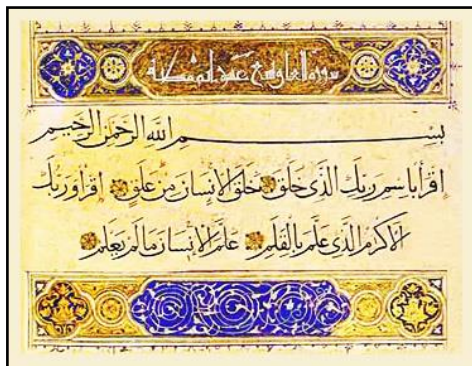 سورة العلق تسع عشر آية مكية
بِسْمِ اللَّهِ الرَّحْمَٰنِ الرَّحِيمِ
اقْرَأْ بِاسْمِ رَبِّكَ الَّذِي خَلَقَ خَلَقَ الْإِنْسَانَ مِنْ عَلَقٍ اقْرَأْ وَرَبُّكَ
الْأَكْرَمُ الَّذِي عَلَّمَ بِالْقَلَمِ عَلَّمَ الْإِنْسَانَ مَا لَمْ يَعْلَمْ